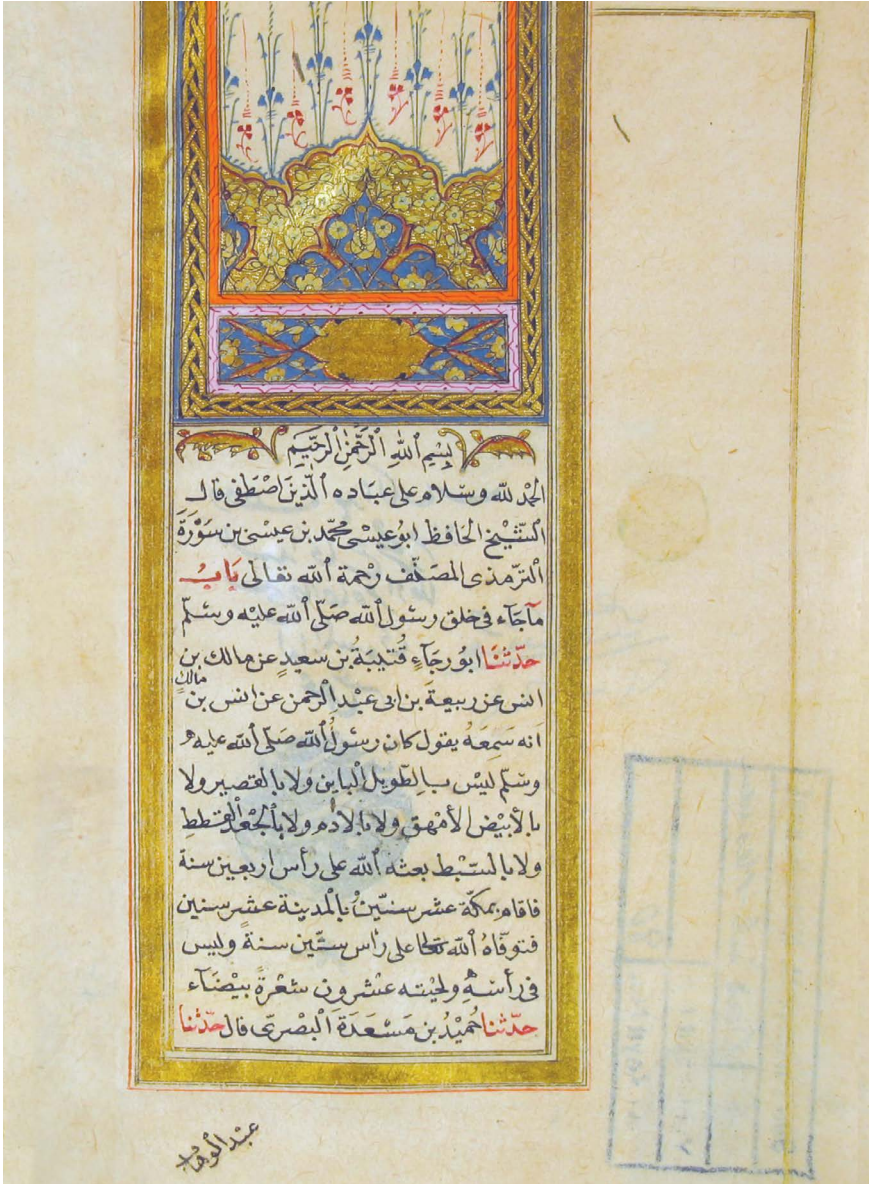 بِسْمِ ٱللّٰهِ ٱلرَّحْمٰنِ ٱلرَّحِيَمِ
الحمْدُ لله وسَلام على عباده ٱلّذينَ اصْطَفى قال
ٱلشّيْخ الحَافظ ابوُعيسى محمّد بن عيسىَ بن سَوْرَةَ
ٱلترّمذى المصَنّف رَحْمة ٱلله تعَالى بَابُ
مآجَآء فى خلق رسُول ٱلله صَلّى ٱلله عليْه وسَلّم
حدّثنَا ابوُ رجَآءٍ قُتيبَةُ بن سعيدٍ عن مالك بن
انس عن ربيعةَ بن ابى عبْد ٱلرحمن عن انس بن مالكٍ
اَنه سَمِعَهُ يقول كان رسُولُ ٱلله صَلّى ٱلله عليْه
وسَلّم ليْسَ بالطّويل ٱلباين ولا بالقصير ولا
بالأبيْض الأمْهق ولا بالادَم ولا بٱلجعْد القطط
ولا بالسّبْط بعثهُ ٱلله على رأس اربعين سنة
فاقام بمكّة عشر سنيّن وبٱلمدينة عشر سنين
فتوفّاهُ ٱلله تعالى على رَأس ستّين سنةً وليس
فى رأسِهِ ولحيْته عشْرون شعْرةً بيْضَآء
حدّثنا حُميْدُ بن مَسْعَدَةَ ٱلبَصْرىّ قال حَدّثنا
عبْد ٱلوهّاب